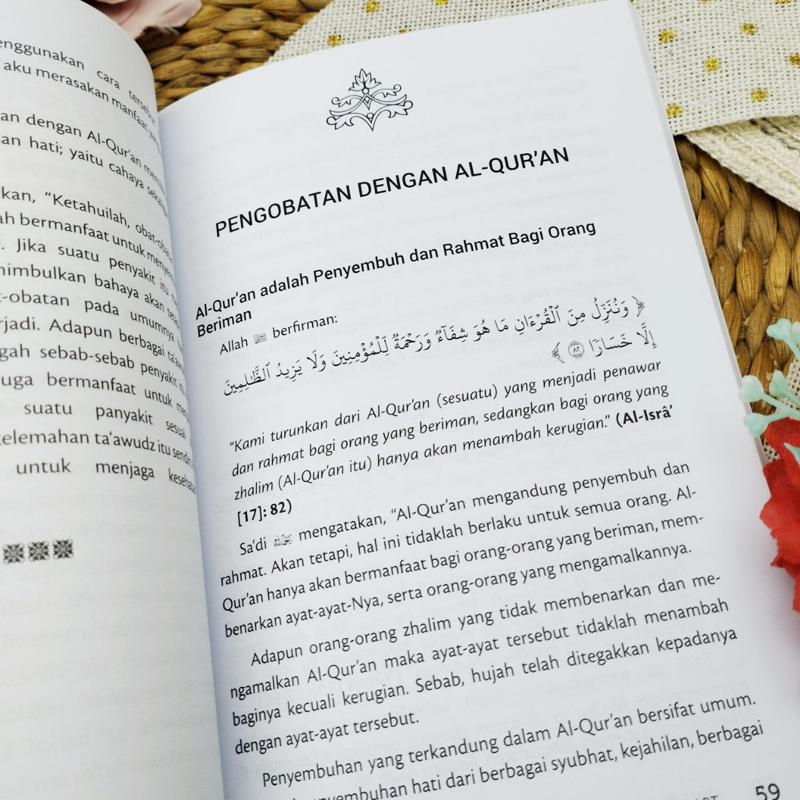 enggunakan cara
aku merasakan manfaat
an dengan Al-Qur'an
an hati; yaitu cahaya
kan, "Ketahuilah,
ah bermanfaat untuk
. Jika suatu penyakit itu
nimbulkan bahaya akan
t-obatan pada umumnya
rjadi. Adapun berbagai
gah sebab-sebab penyakit
uga bermanfaat untuk
suatu panyakit
elemahan ta'awudz itu
untuk menjaga
PENGOBATAN DENGAN AL-QUR'AN
Al-Qur'an adalah Penyembuh dan Rahmat Bagi Orang
Beriman
Allah ﷻ berfirman:
﴿ وَنُنَزِّلُ مِنَ ٱلْقُرْءَانِ مَا هُوَ شِفَآءٌ وَرَحْمَةٌ لِّلْمُؤْمِنِينَ وَلَا يَزِيدُ ٱلظَّٰلِمِينَ
إِلَّا خَسَارًا ۝٨٢ ﴾
"Kami turunkan dari Al-Qur'an (sesuatu) yang menjadi penawar
dan rahmat bagi orang yang beriman, sedangkan bagi orang yang
zhalim (Al-Qur'an itu) hanya akan menambah kerugian." (Al-Isrâ'
[17]: 82)
Sa'di mengatakan, "Al-Qur'an mengandung penyembuh dan
rahmat. Akan tetapi, hal ini tidaklah berlaku untuk semua orang. Al-
Qur'an hanya akan bermanfaat bagi orang-orang yang beriman, mem-
benarkan ayat-ayat-Nya, serta orang-orang yang mengamalkannya.
Adapun orang-orang zhalim yang tidak membenarkan dan me-
ngamalkan Al-Qur'an maka ayat-ayat tersebut tidaklah menambah
baginya kecuali kerugian. Sebab, hujah telah ditegakkan kepadanya
dengan ayat-ayat tersebut.
Penyembuhan yang terkandung dalam Al-Qur'an bersifat umum.
penyembuhan hati dari berbagai syubhat, kejahilan, berbagai
59